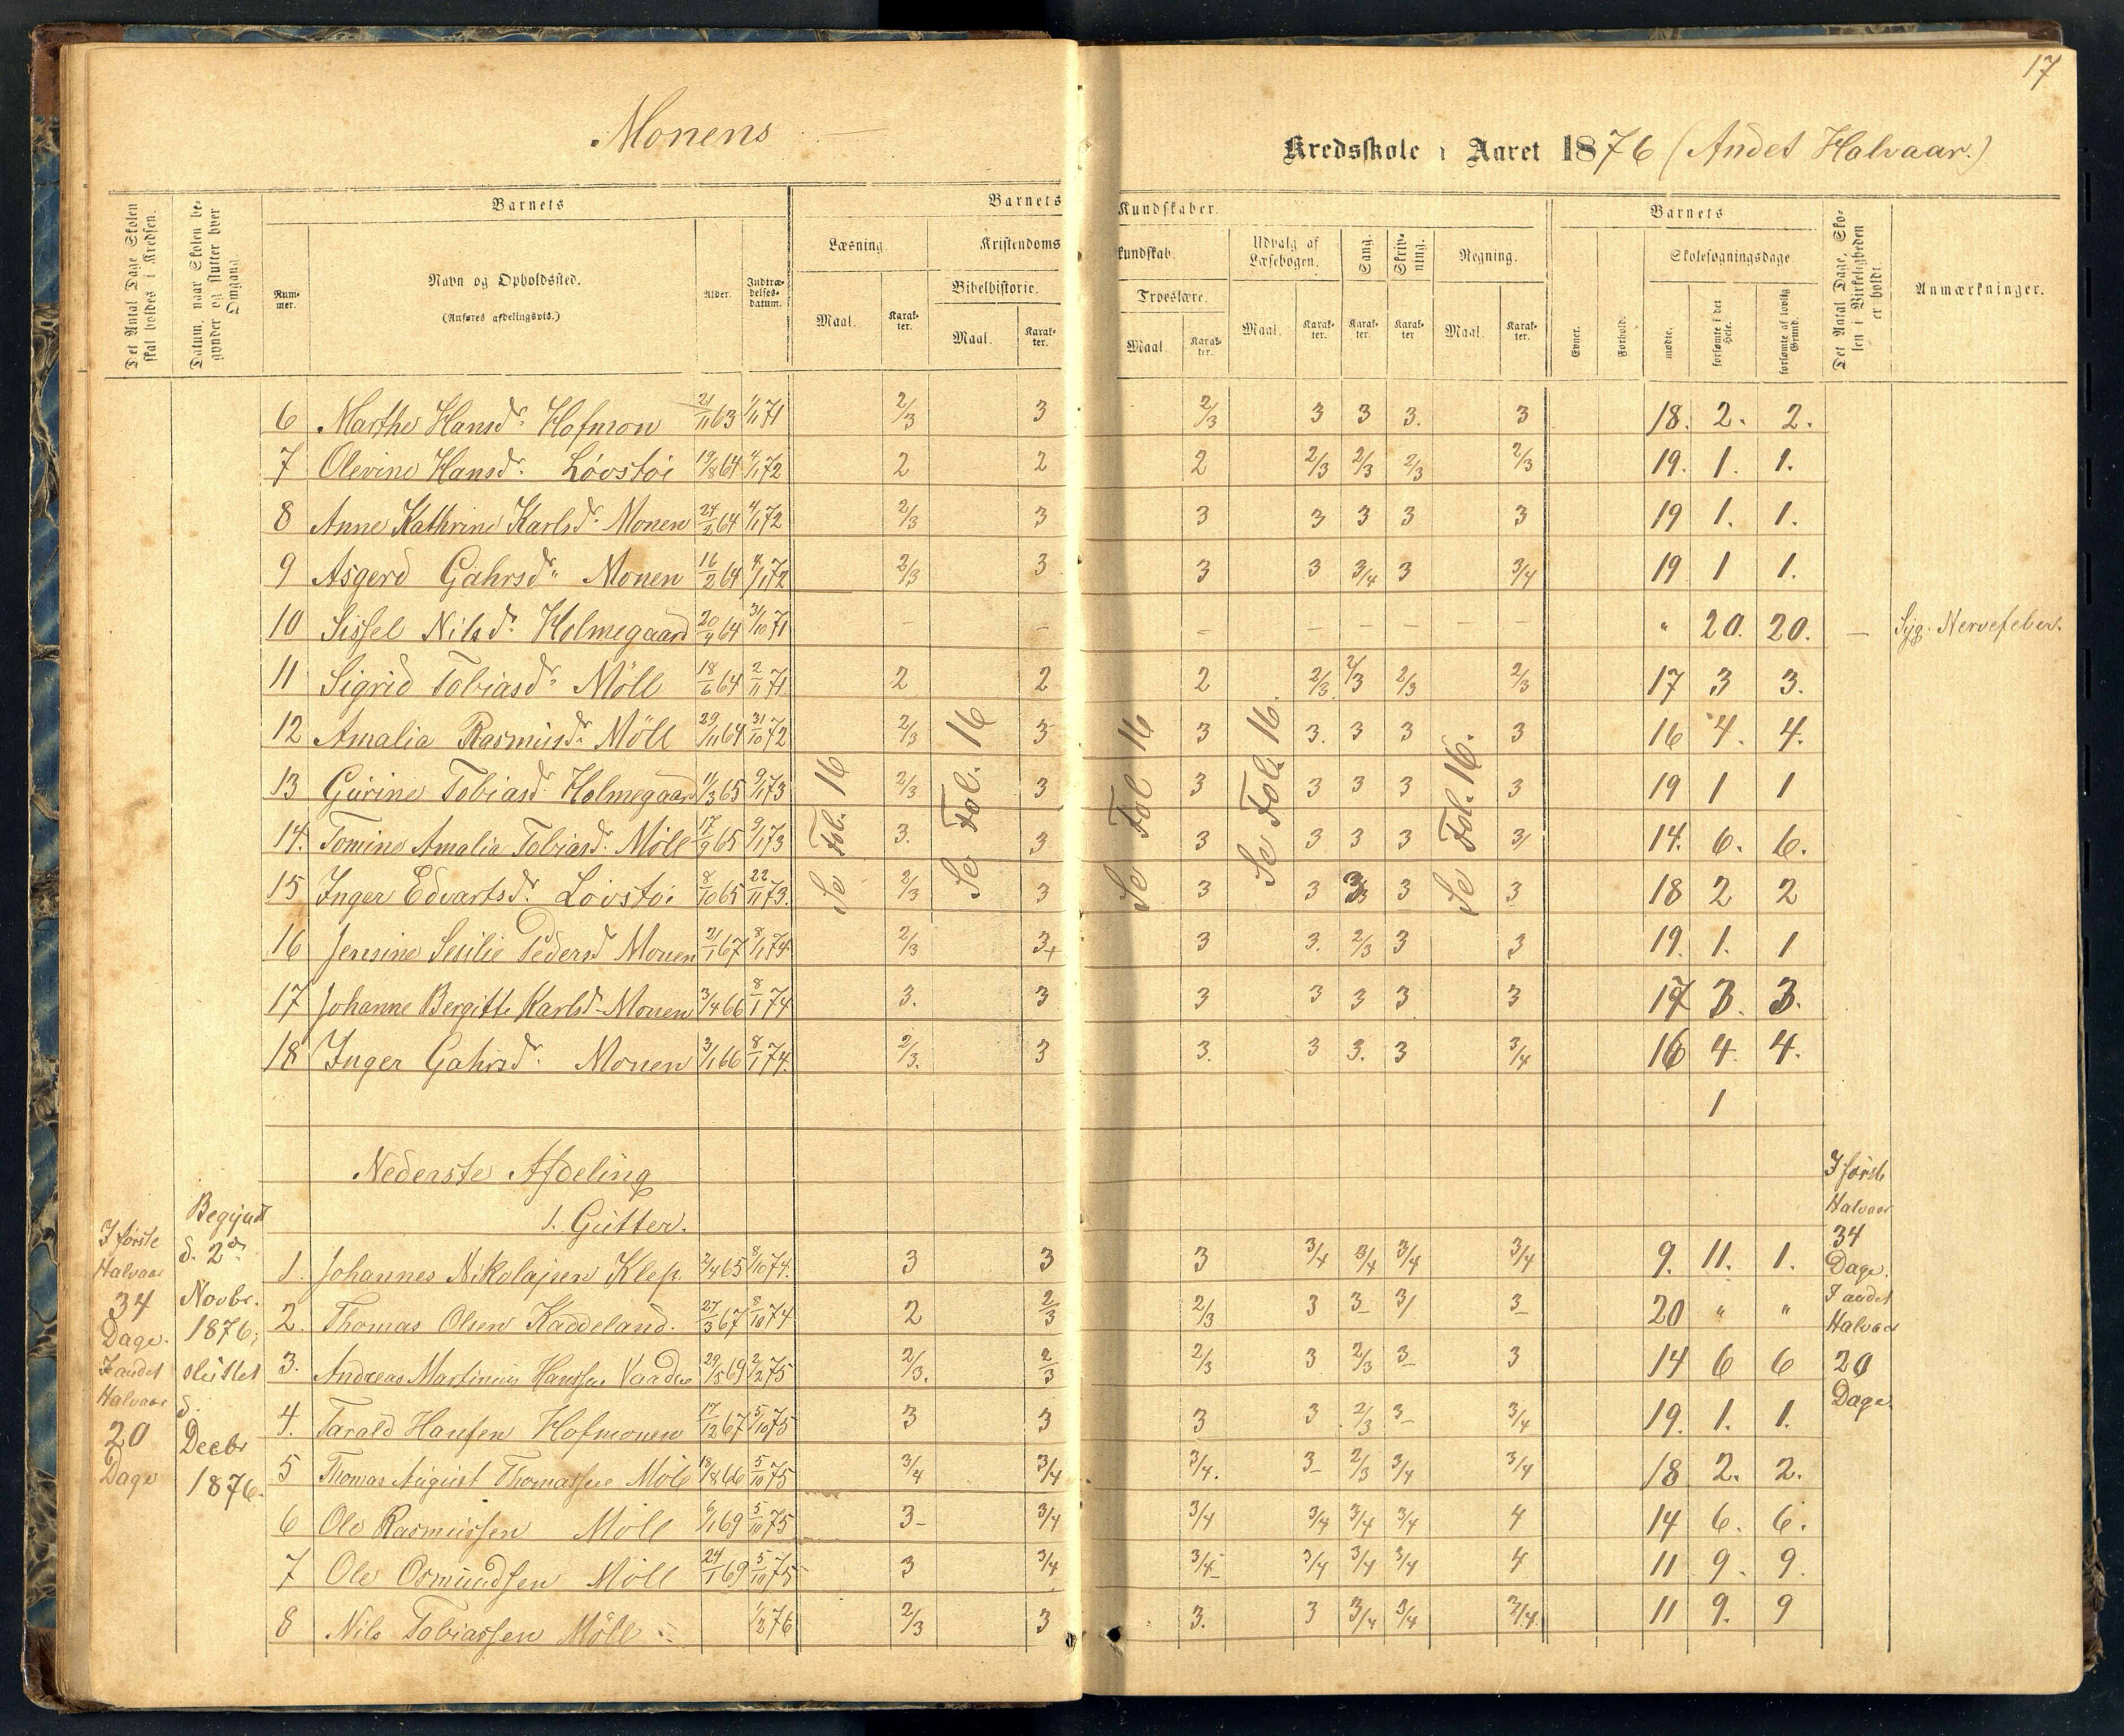 17
Monens
Kredsskole i Aaret 1876 (Andet Halvaar.)
Det Antal Dage Skolen skal holdes i Kredsen.
Datum, naar Skolen begynder og slutter hver Omgang.
Barnets
Nummer.
Navn og Opholdssted.
(Anføres afdelingsvis.)
Alder.
Indtrædelsesdatum.
Barnets Kundskaber.
Læsning.
Maal.
Karakter.
Kristendomskundskab.
Bibelhistorie.
Maal.
Karakter.
Troeslære.
Maal.
Karakter.
Udvalg af Læsebogen.
Maal.
Karakter.
Sang.
Karakter.
Skrivning.
Karakter
Regning.
Maal.
Karakter.
Barnets
Evner.
Forhold.
Skolesøgningsdage
mødte.
forsømte i det Hele.
forsømte af lovlig Grund.
Det Antal Dage, Skolen i Virkeligheden er holdt.
Anmærkninger.
6 Marthe Hansd. Hofmon 21/11 63 1/11 71 2/3 3 2/3 3 3 3. 3 18. 2. 2.
7 Olevine Hansd. Lövstöi 19/8 64 4/1 72 2 2 2 2/3 2/3 2/3 2/3 19. 1. 1.
8 Anne Kathrine Karlsd. Monen 24/2 64 4/1 72 2/3 3 3 3 3 3 3 19 1. 1.
9 Asgerd Gahrsd. Monen 16/2 64 4/1 72 2/3 3 3 3 3/4 3 3/4 19 1 1.
10 Sissel Nilsd. Holmegaard 20/4 64 31/10 71 – – – – – – – " 20. 20. – Syg. Nervefeber.
11 Sigrid Tobiasd. Möll 18/6 64 2/11 71 2 2 2 2/3 2/3 2/3 2/3 17 3 3.
12 Amalia Rasmusd. Möll 29/11 64 31/10 72 2/3 3 3 3. 3 3 3 16 4. 4.
13 Gurine Tobiasd. Holmegaard 11/3 65 9/1 73 2/3 3 3 3 3 3 3 19 1 1
14. Tomine Amalia Tobiasd. Möll 17/9 65 9/1 73 3. 3 3 3 3 3 3/ 14. 6. 6.
15 Inger Edvartsd. Lövstöi 8/10 65 22/11 73. 2/3 3 3 3 3 3 3 18 2 2
16 Jensine Sesilie Pedersd Monen 21/1 67 8/1 74 2/3 3+ 3 3. 2/3 3 3 19. 1. 1
17 Johanne Bergitte Karlsd. Monen 3/4 66 8/1 74 3. 3 3 3 3 3 3 17 3. 3.
18 Inger Gahrsd. Monen 3/1 66 8/1 74. 2/3. 3 3. 3 3. 3 3/4 16 4. 4.
Se Fol. 16
Se Fol. 16
Se Fol 16
Se Fol. 16.
Se Fol. 16.
1
Nederste Afdeling
1. Gutter.
I förste Halvaar 34 Dage. I andet Halvaar 20 Dage
Begyndt d. 2den Novbr. 1876; sluttet d. Decbr 1876.
1. Johannes Nikolajsen Klep. 7/4 65 8/10 74. 3 3 3 3/4 3/4 3/4 3/4 9. 11. 1.
2. Thomas Olsen Kaddeland. 27/3 67 8/10 74 2 2/3 2/3 3 3– 3/ 3– 20 " "
3. Andreas Martinius Hanssen Vaadne 29/5 69 2/2 75 2/3. 2/3 2/3 3 2/3 3– 3 14 6 6
4. Tarald Hansen Hofmonen 17/12 67 5/10 75 3 3 3 3 2/3 3– 3/4 19. 1. 1.
5 Thomas August Thomassen Möll 18/8 66 5/10 75 3/4 3/4 3/4. 3– 2/3 3/4 3/4 18 2. 2.
6 Ole Rasmussen Möll 6/1 69 5/10 75 3– 3/4 3/4 3/4 3/4 3/4 4 14 6. 6.
7 Ole Osmundsen Möll 24/1 69 5/10 75 3 3/4 3/4– 3/4 3/4 3/4 4 11 9. 9.
8 Nils Tobiassen Möll 1/2 76 2/3 3 3. 3 3/4 3/4 3/4 11 9. 9
I förste Halvaar 34 Dage. I andet Halvaar 20 Dage.